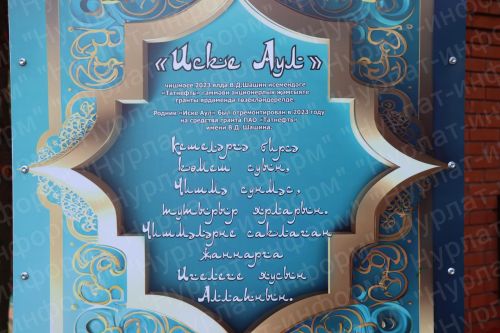 «Иске Аул»
чишмәсе 2023 елда В.Д.Шашин исемендәге
«Татнефть» гаммәви акционерлык җәмгыяте
гранты ярдәмендә төзекләндерелде
Родник «Иске Аул» был отремонтирован в 2023 году
на средства гранта ПАО «Татнефть»
имени В.Д. Шашина.
Кешеләргә бирсә
көмеш суын,
Чишмә сүнмәс,
тутырыр ярларын.
Чишмәләрне саклаган
җаннарга
Игелеге яусын
Аллаһның.